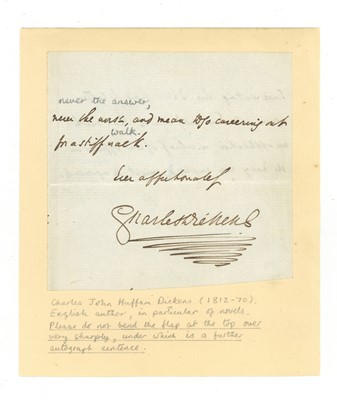 never the answer,
never the worst, and mean to go careering out
walk.
for a stiff walk.
Ever affectionately
Charles Dickens
Charles John Huffam Dickens (1812-70).
English author, in particular of novels.
Please do not bend the flap at the top over
very sharply, under which is a further
autograph sentence.